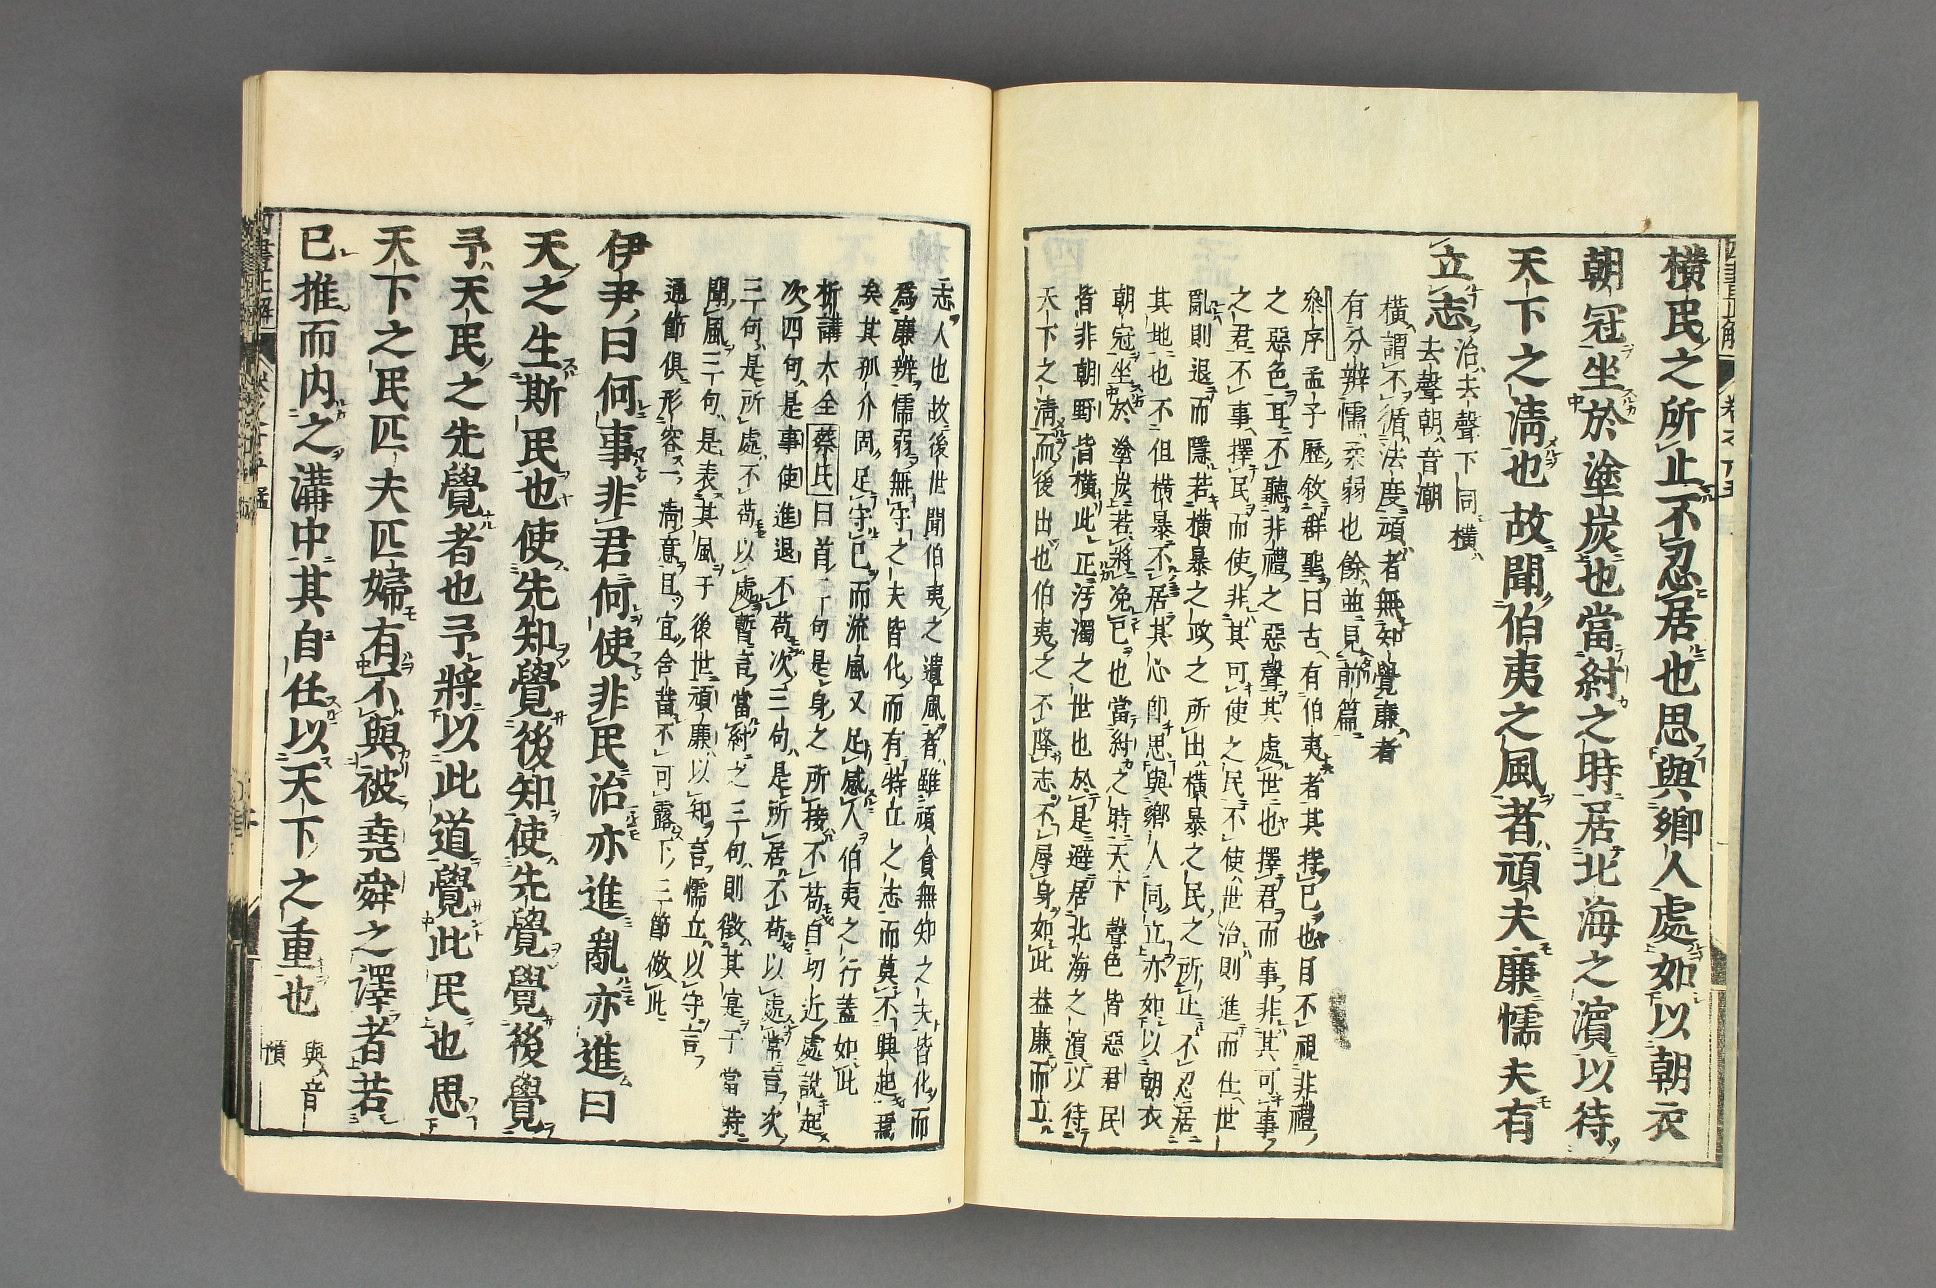 橫民之所止不忍居也思與鄕人處如以朝衣
朝冠坐於塗炭也當紂之時居北海之濱以待
天下之淸也故聞伯夷之風者頑夫廉懦夫有
立志
治去聲下同橫
去聲朝音潮
橫謂不循法度頑者無知覺廉者
有分辨懦柔弱也餘並見前篇
叅序孟子歷敘群聖曰古有伯夷者其持已也目不視非禮
之惡色耳不聽非禮之惡聲其處世也擇君而事非其可事
之君不事擇民而使非其可使之民不使世治則進而仕世
亂則退而隱若橫暴之政之所出橫暴之民之所止不忍居
其地也不但橫暴不居其心卽思與鄕人同立亦如以朝衣
朝冠坐於塗炭若將凂已也當紂之時天下聲色皆惡君民
皆非朝野皆橫此正汚濁之世也於是避居北海之濱以待
天下之淸而後出也伯夷之不降志不辱身如此益廉而立
志人也故後世聞伯夷之遺風者雖頑貪無知之夫皆化而
爲廉辨懦弱無守之夫皆化而有特立之志而莫不興起焉
矣其耿介固足守已而流風又足感人伯夷之行蓋如此
析講大全蔡氏曰首一句是身之所接不苟自切近處說起
次四句是事使進退不苟次三句是所居不苟以處常言次
三句是所處不苟以處暫言當紂之三句則徵其寔于當時
聞風三句是表其風于後世頑廉以知言懦立以守言
通節俱形容一淸意且宜含蓄不可露下三節倣此
伊尹曰何事非君何使非民治亦進亂亦進曰
天之生斯民也使先知覺後知使先覺覺後覺
予天民之先覺者也予將以此道覺此民也思
天下之民匹夫匹婦有不與被堯舜之澤者若
已推而內之溝中其自任以天下之重也
與音
預